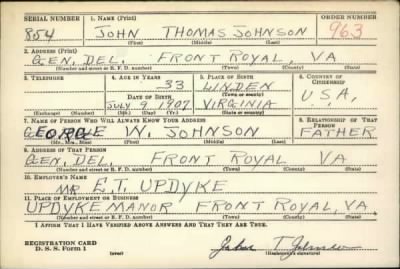 SERIAL NUMBER 1. NAME (Print) ORDER NUMBER
854 JOHN THOMAS JOHNSON 963
(First) (Middle) (Last)
2. ADDRESS (Print)
GEN. DEL. FRONT ROYAL, VA
(Number and street or R. F. D. number) (Town) (County) (State)
3. TELEPHONE 4. AGE IN YEARS 5. PLACE OF BIRTH 6. COUNTRY OF CITIZENSHIP
33 LINDEN
DATE OF BIRTH (Town or county)
JULY 9 1907 VIRGINIA U.S.A.
(Exchange) (Number) (Mo.) (Day) (Yr.) (State or country)
7. NAME OF PERSON WHO WILL ALWAYS KNOW YOUR ADDRESS 8. RELATIONSHIP OF THAT PERSON
GEORGE W. JOHNSON FATHER
(Mr., Mrs., Miss) (First) (Middle) (Last)
9. ADDRESS OF THAT PERSON
GEN. DEL. FRONT ROYAL VA
(Number and street or R. F. D. number) (Town) (County) (State)
10. EMPLOYER'S NAME
MR E.T. UPDYKE
11. PLACE OF EMPLOYMENT OR BUSINESS
UPDYKE MANOR FRONT ROYAL, VA.
(Number and street or R. F. D. number) (Town) (County) (State)
I AFFIRM THAT I HAVE VERIFIED ABOVE ANSWERS AND THAT THEY ARE TRUE.
REGISTRATION CARD
D. S. S. Form 1 (over) John T. Johnson
(Registrant's signature)